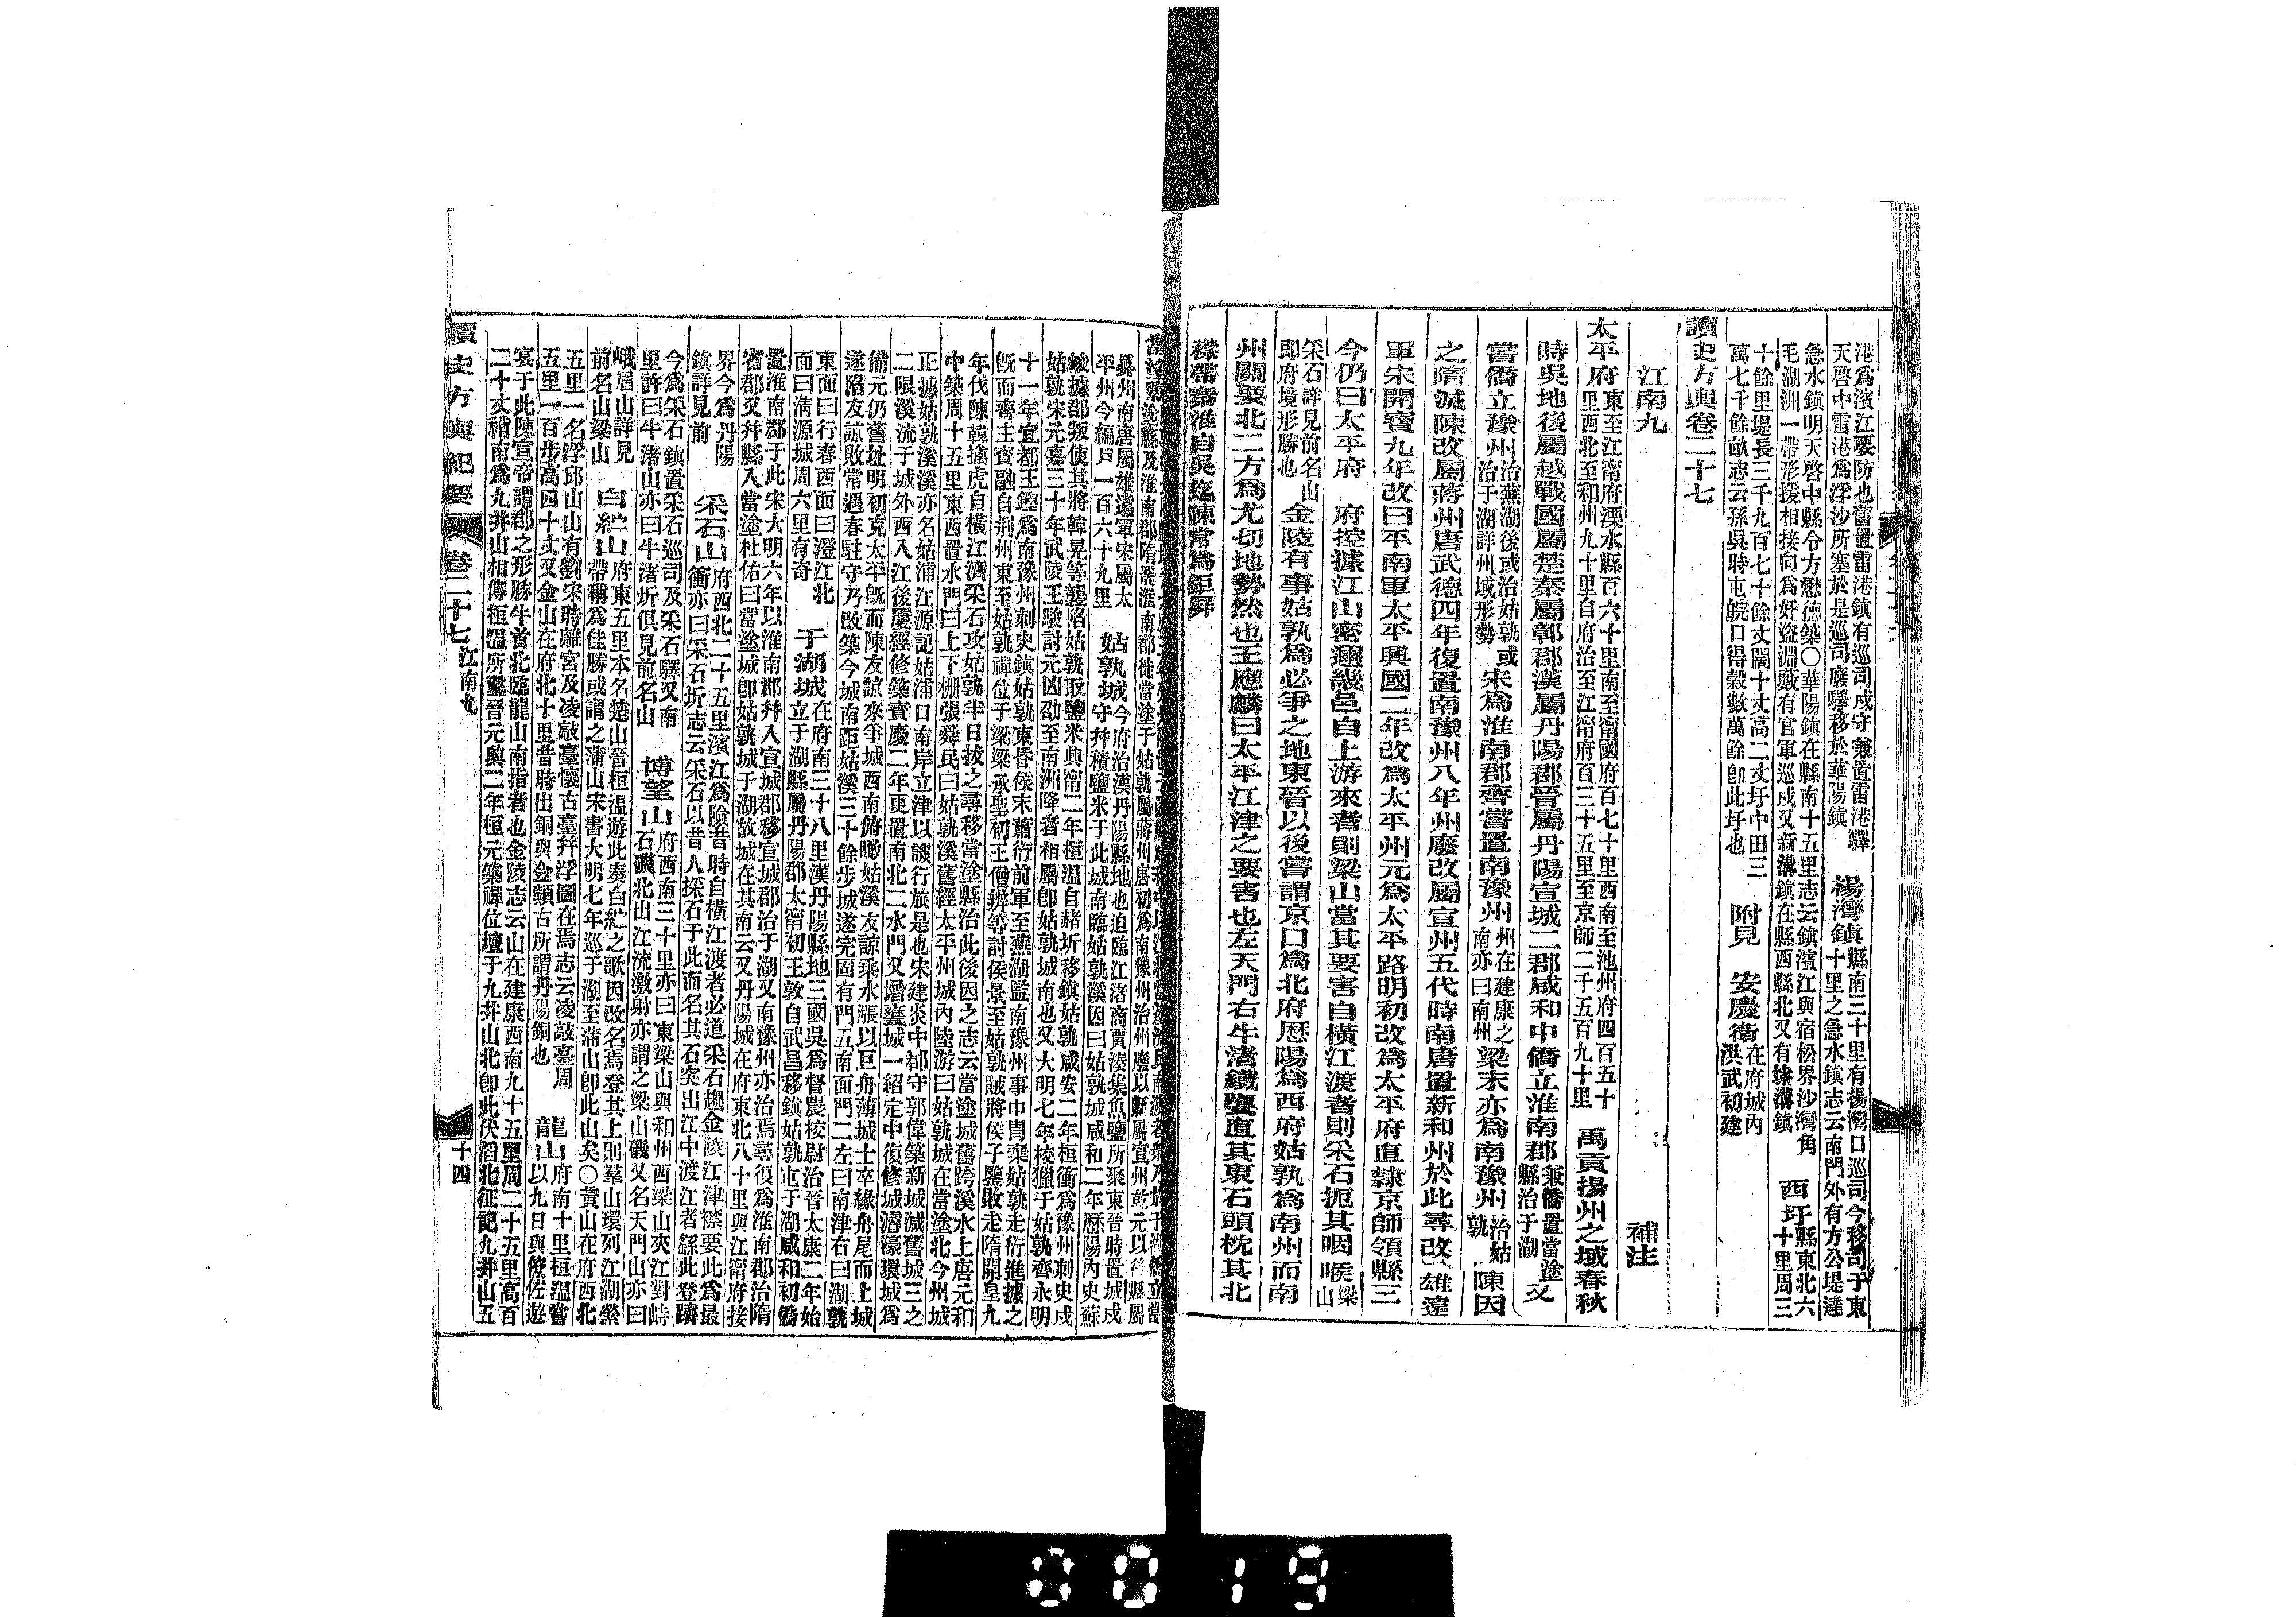 港爲濱江要防也舊置雷港鎮有巡司戍守兼置雷港驛
天啓中雷港爲浮沙所塞於是巡司廢驛移於華陽鎮
楊灣鎮縣南三十里有楊灣口巡司今移司于東
十里之急水鎮志云南門外有方公堤達
急水鎮明天啓中縣令方懋德築〇華陽鎮在縣南十五里志云鎮濱江與宿松界沙灣角
毛湖洲一帶形援相接向爲奸盜淵藪有官軍巡戍又新溝鎮在縣西縣北又有埭溝鎮
西圩縣東北六
十里周三
十餘里堤長三千九百七十餘丈闊十丈高二丈圩中田三
萬七千餘畝志云孫吳時屯皖口得穀數萬餘卽此圩也
附見 安慶衛在府城內
洪武初建
讀史方輿卷二十七
江南九 補注
太平府東至江甯府溧水縣百六十里南至甯國府百七十里西南至池州府四百五十
里西北至和州九十里自府治至江甯府百三十五里至京師二千五百九十里
禹貢揚州之域春秋
時吳地後屬越戰國屬楚秦屬鄣郡漢屬丹陽郡晉屬丹陽宣城二郡咸和中僑立淮南郡兼僑置當塗
縣治于湖
又
嘗僑立豫州治蕪湖後或治姑孰或
治于湖詳州域形勢
宋爲淮南郡齊嘗置南豫州州在建康之
南亦曰南州
梁末亦爲南豫州治姑
孰
陳因
之隋滅陳改屬蔣州唐武德四年復置南豫州八年州廢改屬宣州五代時南唐置新和州於此尋改雄遠
軍宋開寶九年改曰平南軍太平興國二年改爲太平州元爲太平路明初改爲太平府直隸京師領縣三
今仍曰太平府 府控據江山密邇畿邑自上游來者則梁山當其要害自橫江渡者則采石扼其咽喉梁山
采石詳見前名山
即府境形勝也
金陵有事姑孰爲必爭之地東晉以後嘗謂京口爲北府歷陽爲西府姑孰爲南州而南
州關要北二方爲尤切地勢然也王應麟曰太平江津之要害也左天門右牛渚鐵甕直其東石頭枕其北
襟帶秦淮自吳迄陳常爲鉅屏
當塗縣
塗縣及淮南郡隋罷淮南郡徙當塗于姑孰屬蔣州唐初爲南豫州治州廢以縣屬宣州乾元以後縣屬
昇州南唐屬雄遠軍宋屬太
平州今編戶一百六十九里
姑孰城今府治漢丹陽縣地也迫臨江渚商賈湊集魚鹽所聚東晉時置城戍
守幷積鹽米于此城南臨姑孰溪因曰姑孰城咸和二年歷陽內史蘇
峻據郡叛使其將韓晃等襲陷姑孰取鹽米興甯二年桓温自赭圻移鎮姑孰咸安二年桓衝爲豫州刺史戍
姑孰宋元嘉三十年武陵王駿討元凶劭至南洲降者相屬卽姑孰城南也又大明七年校獵于姑孰齊永明
十一年宜都王鏗爲南豫州刺史鎮姑孰東昏侯末蕭衍前軍至蕪湖監南豫州事申胄棄姑孰走衍進據之
旣而齊主寶融自荆州東至姑孰禪位于梁梁承聖初王僧辨等討侯景至姑孰賊將侯子鑒敗走隋開皇九
年伐陳韓擒虎自橫江濟采石攻姑孰半日拔之尋移當塗縣治此後因之志云當塗城舊跨溪水上唐元和
中築周十五里東西置水門曰上下柵張舜民曰姑孰溪舊經太平州城內陸游曰姑孰城在當塗北今州城
正據姑孰溪溪亦名姑浦江源記姑浦口南岸立津以譏行旅是也宋建炎中郡守郭偉築新城減舊城三之
二限溪流于城外西入江後屢經修築寶慶二年更置南北二水門又增甕城一紹定中復修城濬濠環城爲
備元仍舊址明初克太平旣而陳友諒來爭城西南俯瞰姑溪友諒乘水漲以巨舟薄城士卒緣舟尾而上城
遂陷友諒敗常遇春駐守乃改築今城南距姑溪三十餘步城遂完固有門五南面門二左曰南津右曰湖孰
東面曰行春西面曰澄江北
面曰淸源城周六里有奇
于湖城在府南三十八里漢丹陽縣地三國吳爲督農校尉治晉太康二年始
立于湖縣屬丹陽郡太甯初王敦自武昌移鎮姑孰屯于湖咸和初僑
置淮南郡于此宋大明六年以淮南郡幷入宣城郡移宣城郡治于湖又南豫州亦治焉尋復爲淮南郡治隋
省郡又幷縣入當塗杜佑曰當塗城卽姑孰城于湖故城在其南云又丹陽城在府東北八十里與江甯府接
界今爲丹陽
鎮詳見前
采石山府西北二十五里濱江爲險昔時自橫江渡者必道采石趨金陵江津襟要此爲最
衝亦曰采石圻志云采石以昔人採石于此而名其石突出江中渡江者繇此登躋
今爲采石鎮置采石巡司及采石驛又南
里許曰牛渚山亦曰牛渚圻俱見前名山
博望山府西南三十里亦曰東梁山與和州西梁山夾江對峙
石磯北出江流激射亦謂之梁山磯又名天門山亦曰
峨眉山詳見
前名山梁山
白紵山府東五里本名楚山晉桓温遊此奏白紵之歌因改名焉登其上則羣山環列江湖縈
帶稱爲佳勝或謂之蒲山宋書大明七年巡于湖至蒲山卽此山矣〇黃山在府西北
五里一名浮邱山山有劉宋時離宮及凌敲臺懷古臺幷浮圖在焉志云凌敲臺周
五里一百步高四十丈又金山在府北十里昔時出銅與金類古所謂丹陽銅也
龍山府南十里桓温嘗
以九日與僚佐遊
宴于此陳宣帝謂郡之形勝牛首北臨龍山南指者也金陵志云山在建康西南九十五里周二十五里高百
二十丈稍南爲九井山相傳桓温所鑿晉元興二年桓元築禪位壇于九井山北卽此伏滔北征記九井山五
讀史方輿紀要 卷二十七 江南九 十四
0019